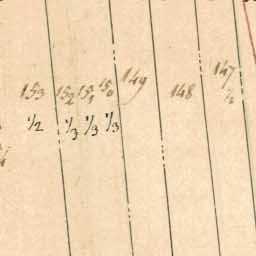 153 152 151 150 149 148 147
1/2 1/3 1/3 1/3 1/2